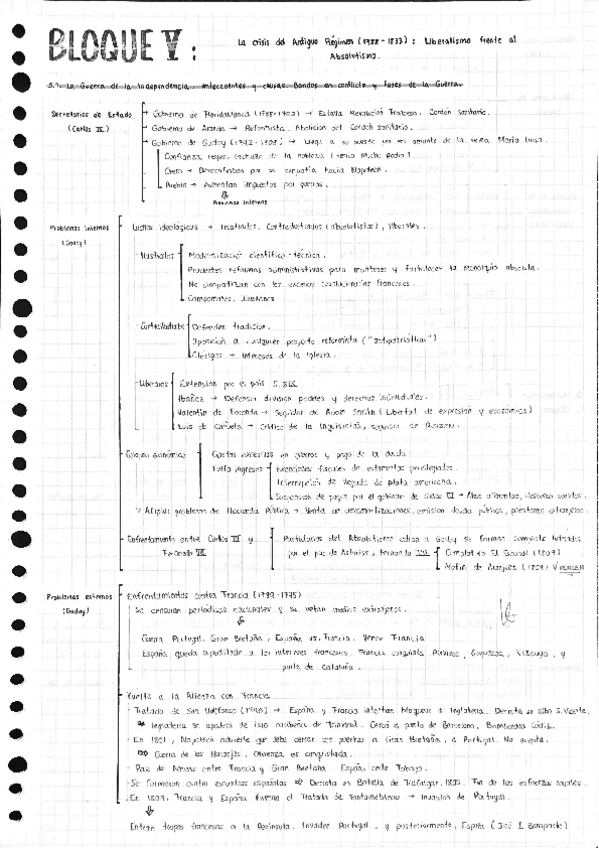 BLOQUE V:
La crisis del Antiguo Régimen (1788-1833): Liberalismo frente al
Absolutismo.
5.1 La Guerra de la Independencia, antecedentes y causas. Bandos en conflicto y fases de la Guerra.
Secretarios de Estado
(Carlos IV)
Gobierno de Floridablanca → Estalla Revolución Francesa. Cordón sanitario.
Gobierno de Aranda → Reformista. Abolición del Cordón sanitario.
Gobierno de Godoy → Llega a su puesto por ser amante de la reina María Luisa.
Confianza reyes, rechazo de la nobleza (tenía mucho poder)
Clero → por su simpatía hacia Napoleón.
Pueblo → Aumentan impuestos por guerras.
Problemas internos
(Godoy)
Luchas ideológicas → Ilustrados, Contrailustrados (absolutistas), liberales.
Ilustrados
Modernización científico-técnica.
Prudentes reformas administrativas para mantener y fortalecer la monarquía absoluta.
No simpatizan con los excesos revolucionarios franceses.
Campomanes, Jovellanos
Contrailustrados
Defienden tradición.
Oposición a cualquier proyecto reformista ("antipatriótico")
Clérigos → Intereses de la Iglesia.
Liberales
Extensión por el país S. XIX
Ibáñez → Defensor división poderes y derechos individuales.
Valentín de Foronda → Seguidor de Adam Smith (Libertad de expresión y económica)
Luis de Cañuelo → Crítico de la Inquisición,
económico
Gastos en guerras y pago de la deuda
Falta ingresos
Exenciones fiscales de estamentos privilegiados.
Interrupción de llegada de plata americana.
Suspensión de pagos por el gobierno de Carlos IV →
problemas de Hacienda Pública → Venta de desamortizaciones, emisión deuda pública, préstamos extranjeros.
Enfrentamiento entre Carlos IV y
Fernando VII
Partidarios del Absolutismo odian a Godoy, se forman complots liderados
por el príncipe de Asturias, Fernando VII
Complot en El Escorial (1807)
Motín de Aranjuez (1808)
Problemas externos
(Godoy)
Enfrentamientos contra Francia
Se censuran periódicos nacionales y se vetan medios extranjeros.
Guerra Portugal, Gran Bretaña, España vs. Francia. Vence Francia
España queda supeditada a los intereses franceses. Francia conquista Guipúzcoa, Vizcaya, y
parte de Cataluña.
Vuelta a la Alianza con Francia
Tratado de San Ildefonso (1796) → España y Francia intentan bloquear a Inglaterra. Derrota en cabo S. Vicente.
Inglaterra se apodera de isla caribeña de Trinidad. Cercó el puerto de Barcelona, Bombardeó Cádiz.
En 1801, Napoleón advierte que debe cerrar sus puertos a Gran Bretaña, a Portugal. No acepta.
Guerra de las Naranjas, Olivenza es conquistada.
Paz de Amiens entre Francia y Gran Bretaña. España cede
Se formaron cuatro escuadras españolas ⇒ Derrota en Batalla de Trafalgar, 1805. Fin de los esfuerzos navales.
En 1807, Francia y España firman el Tratado de Fontainebleau → Invasión de Portugal.
Entran tropas francesas a la Península. Invaden Portugal, y posteriormente, España (José I Bonaparte)